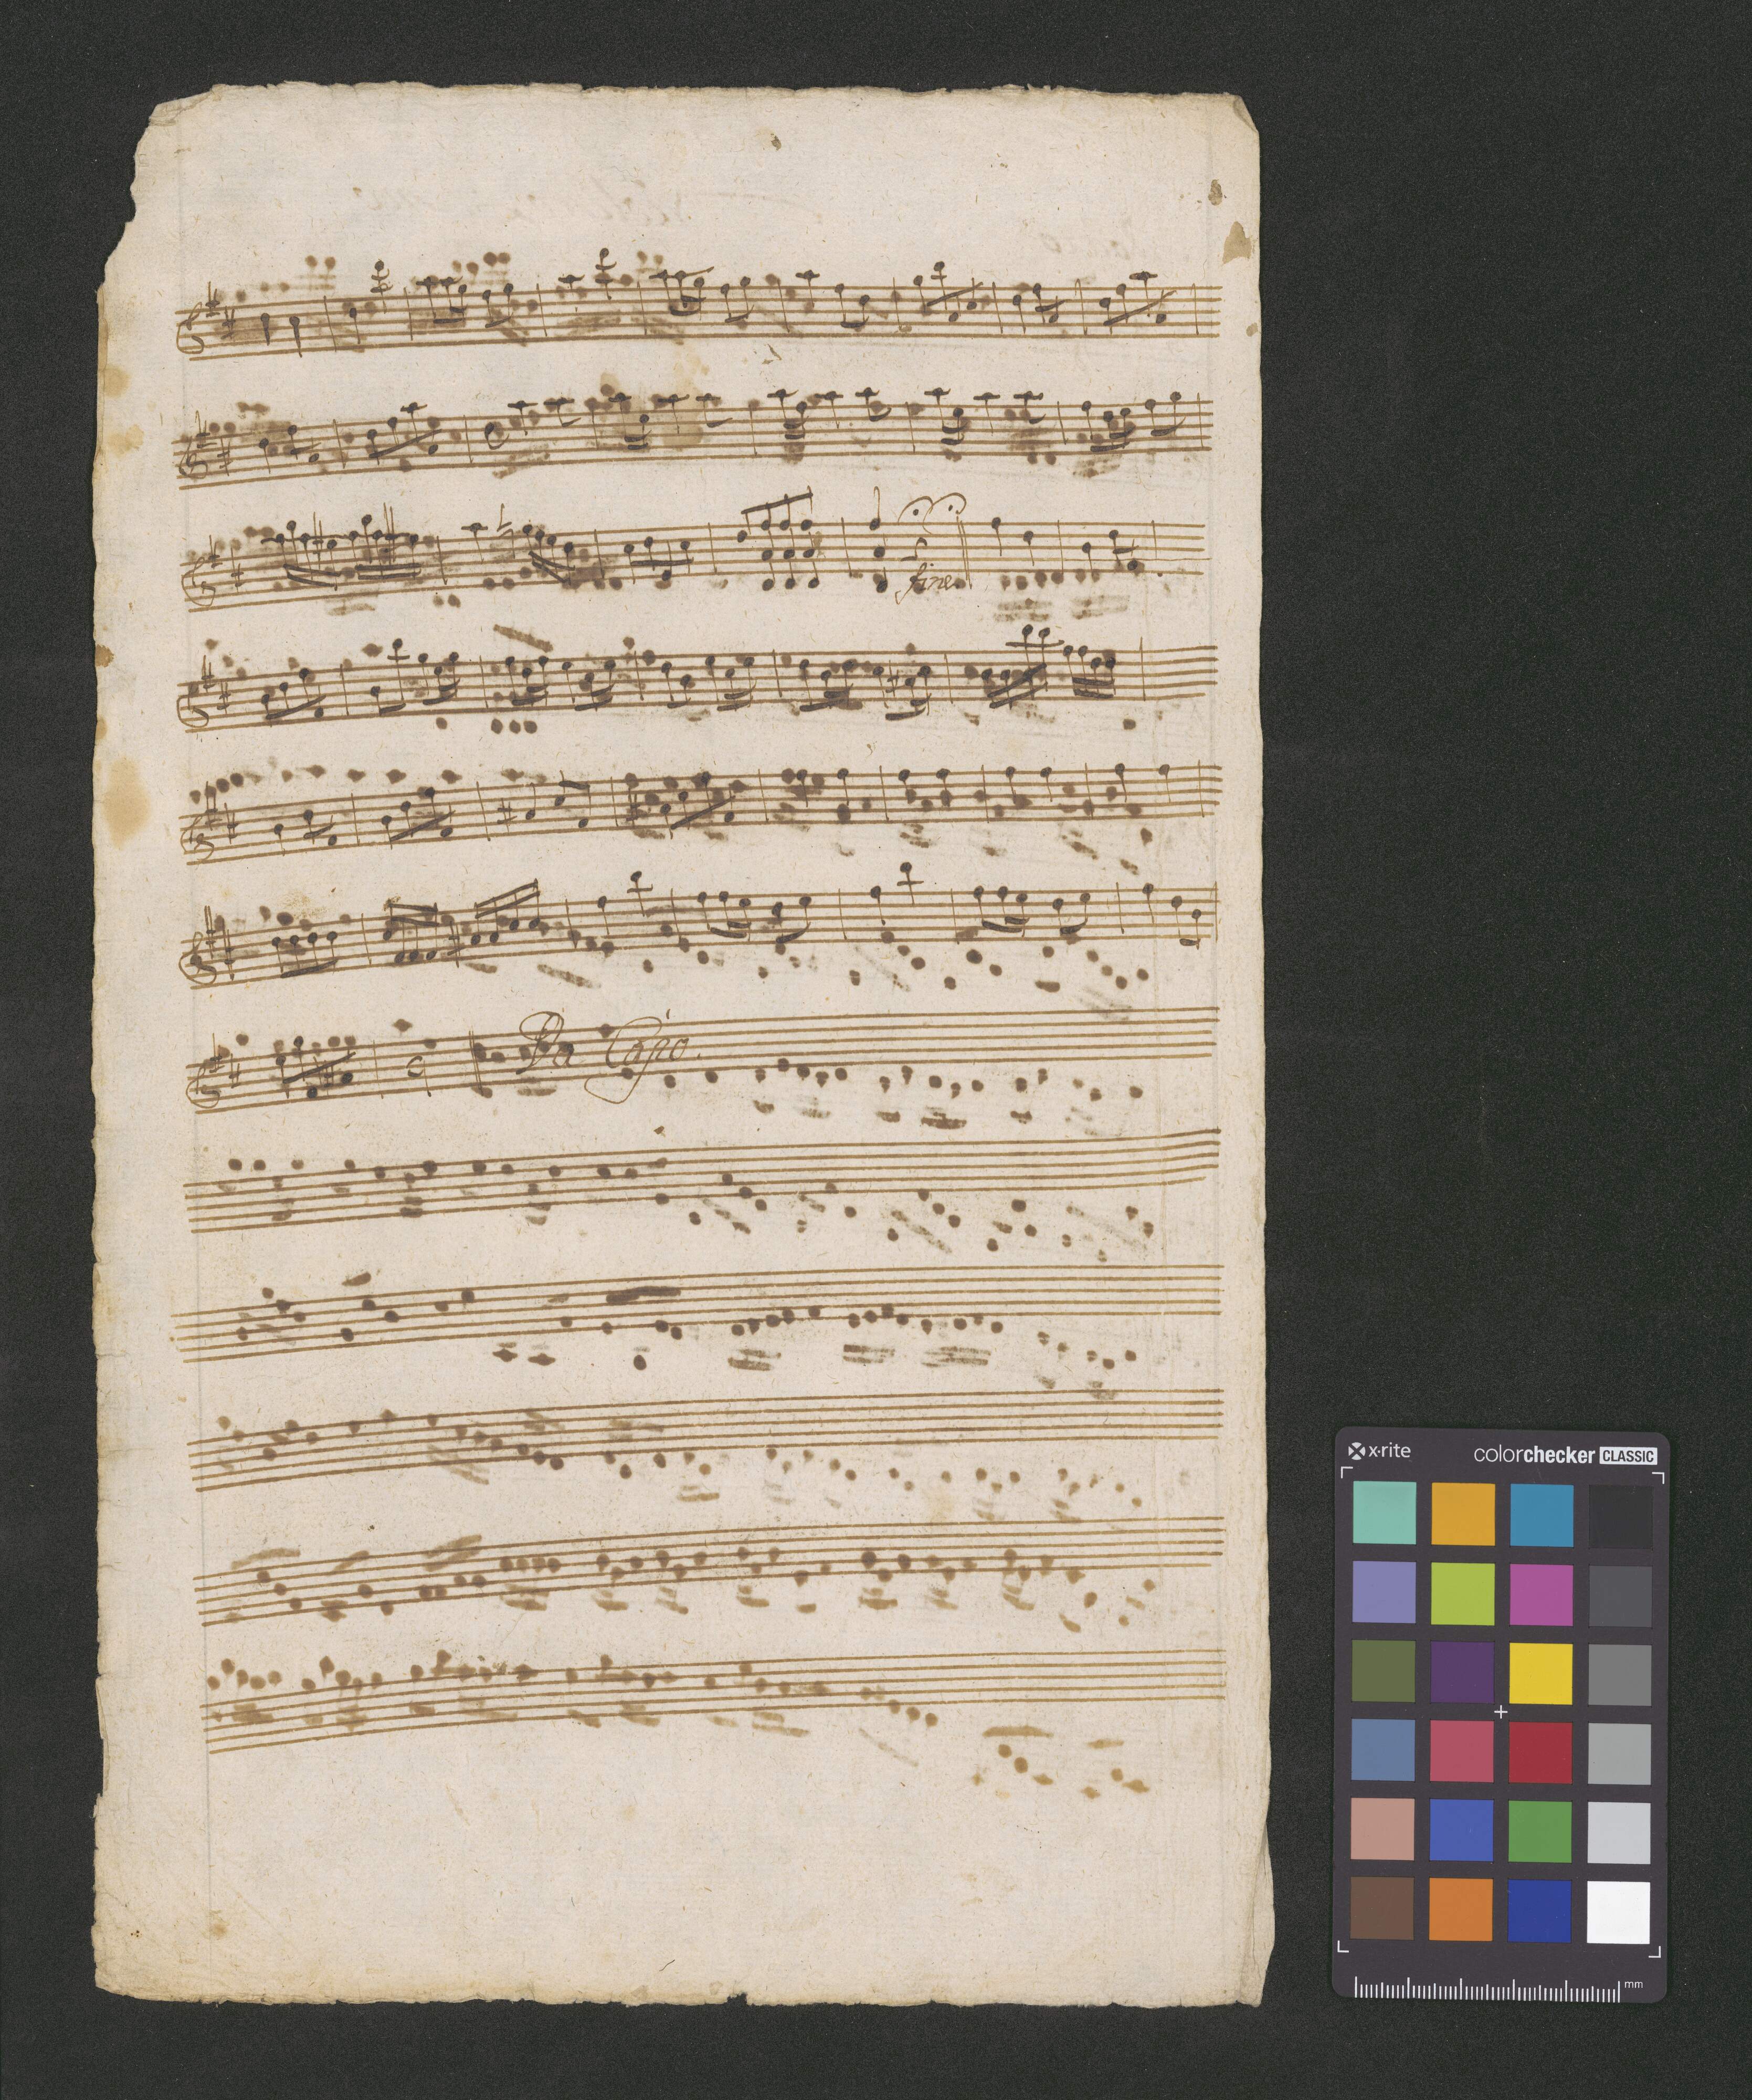 fine
Da Capo.
x-rite colorchecker CLASSIC
mm